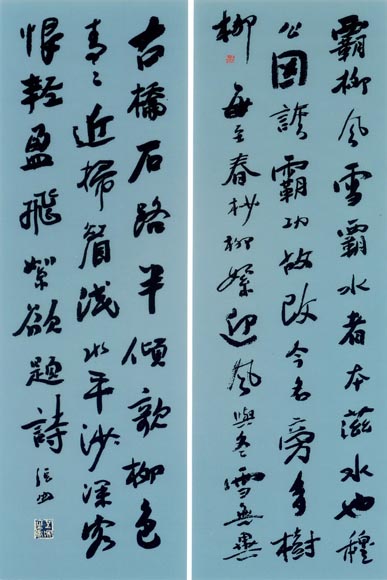 霸柳风雪霸水者本滋水也穆
公因誇霸功故改今名旁多樹
柳每至春杪柳絮迎風與冬雪無異
古橋石路半傾欹柳色
青々近掃眉浅水平沙深客
恨輕盈飛絮欲題詩